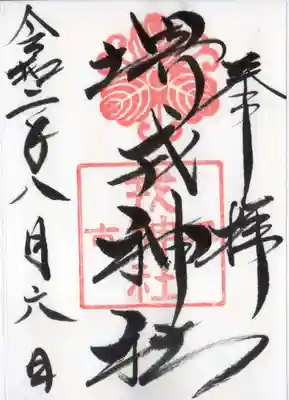 奉拝
堺戎神社
令和二年八月六日